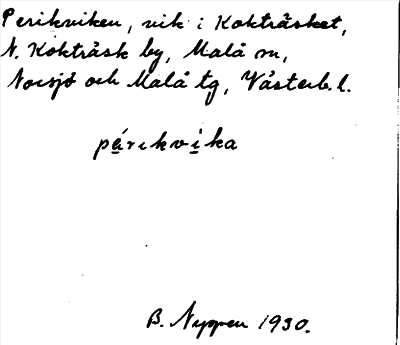 Perikviken, vik i Kokträsket,
N. Kokträsk by, Malå sn,
Norsjö och Malå tg, Västerb. l.
périkvika
B. Nyppen 1930.